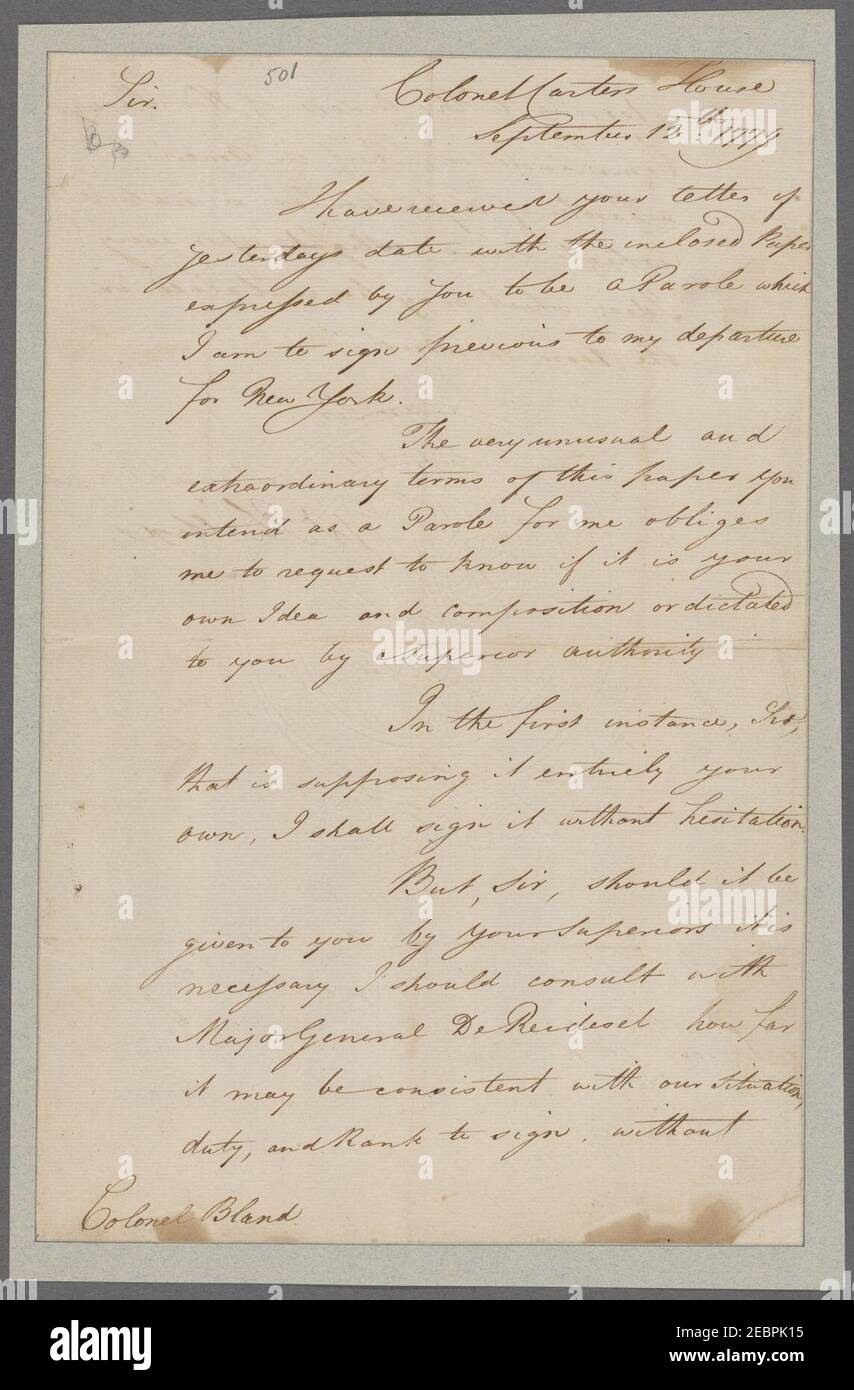 501
Sir.
Colonel Carters House
September 12th 1779
I have received your letter of
yesterdays date with the inclosed Paper
expressed by you to be a Parole which
I am to sign previous to my departure
for New York.
The very unusual and
extraordinary terms of this paper you
intend as a Parole for me obliges
me to request to know if it is your
own Idea and composition or dictated
to you by Superior authority
In the first instance, Sir,
that is supposing it entirely your
own, I shall sign it without hesitation.
But, Sir, should it be
given to you by your Superiors it is
necessary I should consult with
Major General De Reidesel how far
it may be consistent with our situation,
duty, and Rank to sign, without
Colonel Bland
alamy
Image ID: 2EBPK15
www.alamy.com